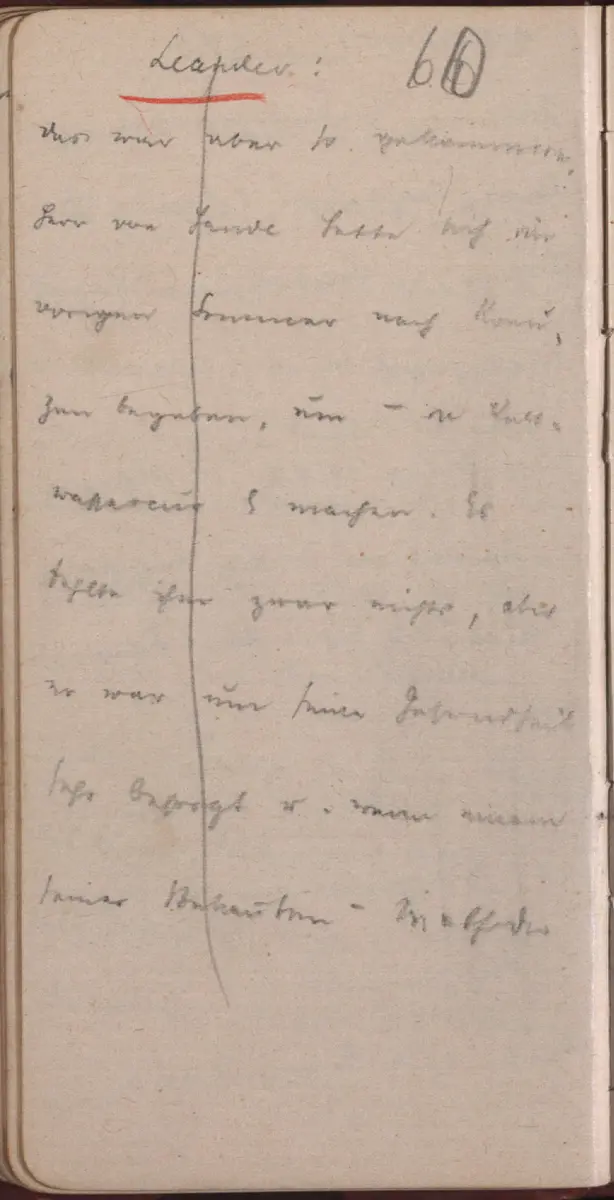 Leander: 60
das war aber so gekommen.
Herr von Sande hatte sich im
vorigen Sommer nach Kreu,
zen begeben, um – e Kalt-
wassercur z machen. Es
fehlte ihm zwar nichts, aber
er war um seine Gesundheit
sehr besorgt u. wenn einem
seiner Bekannten –